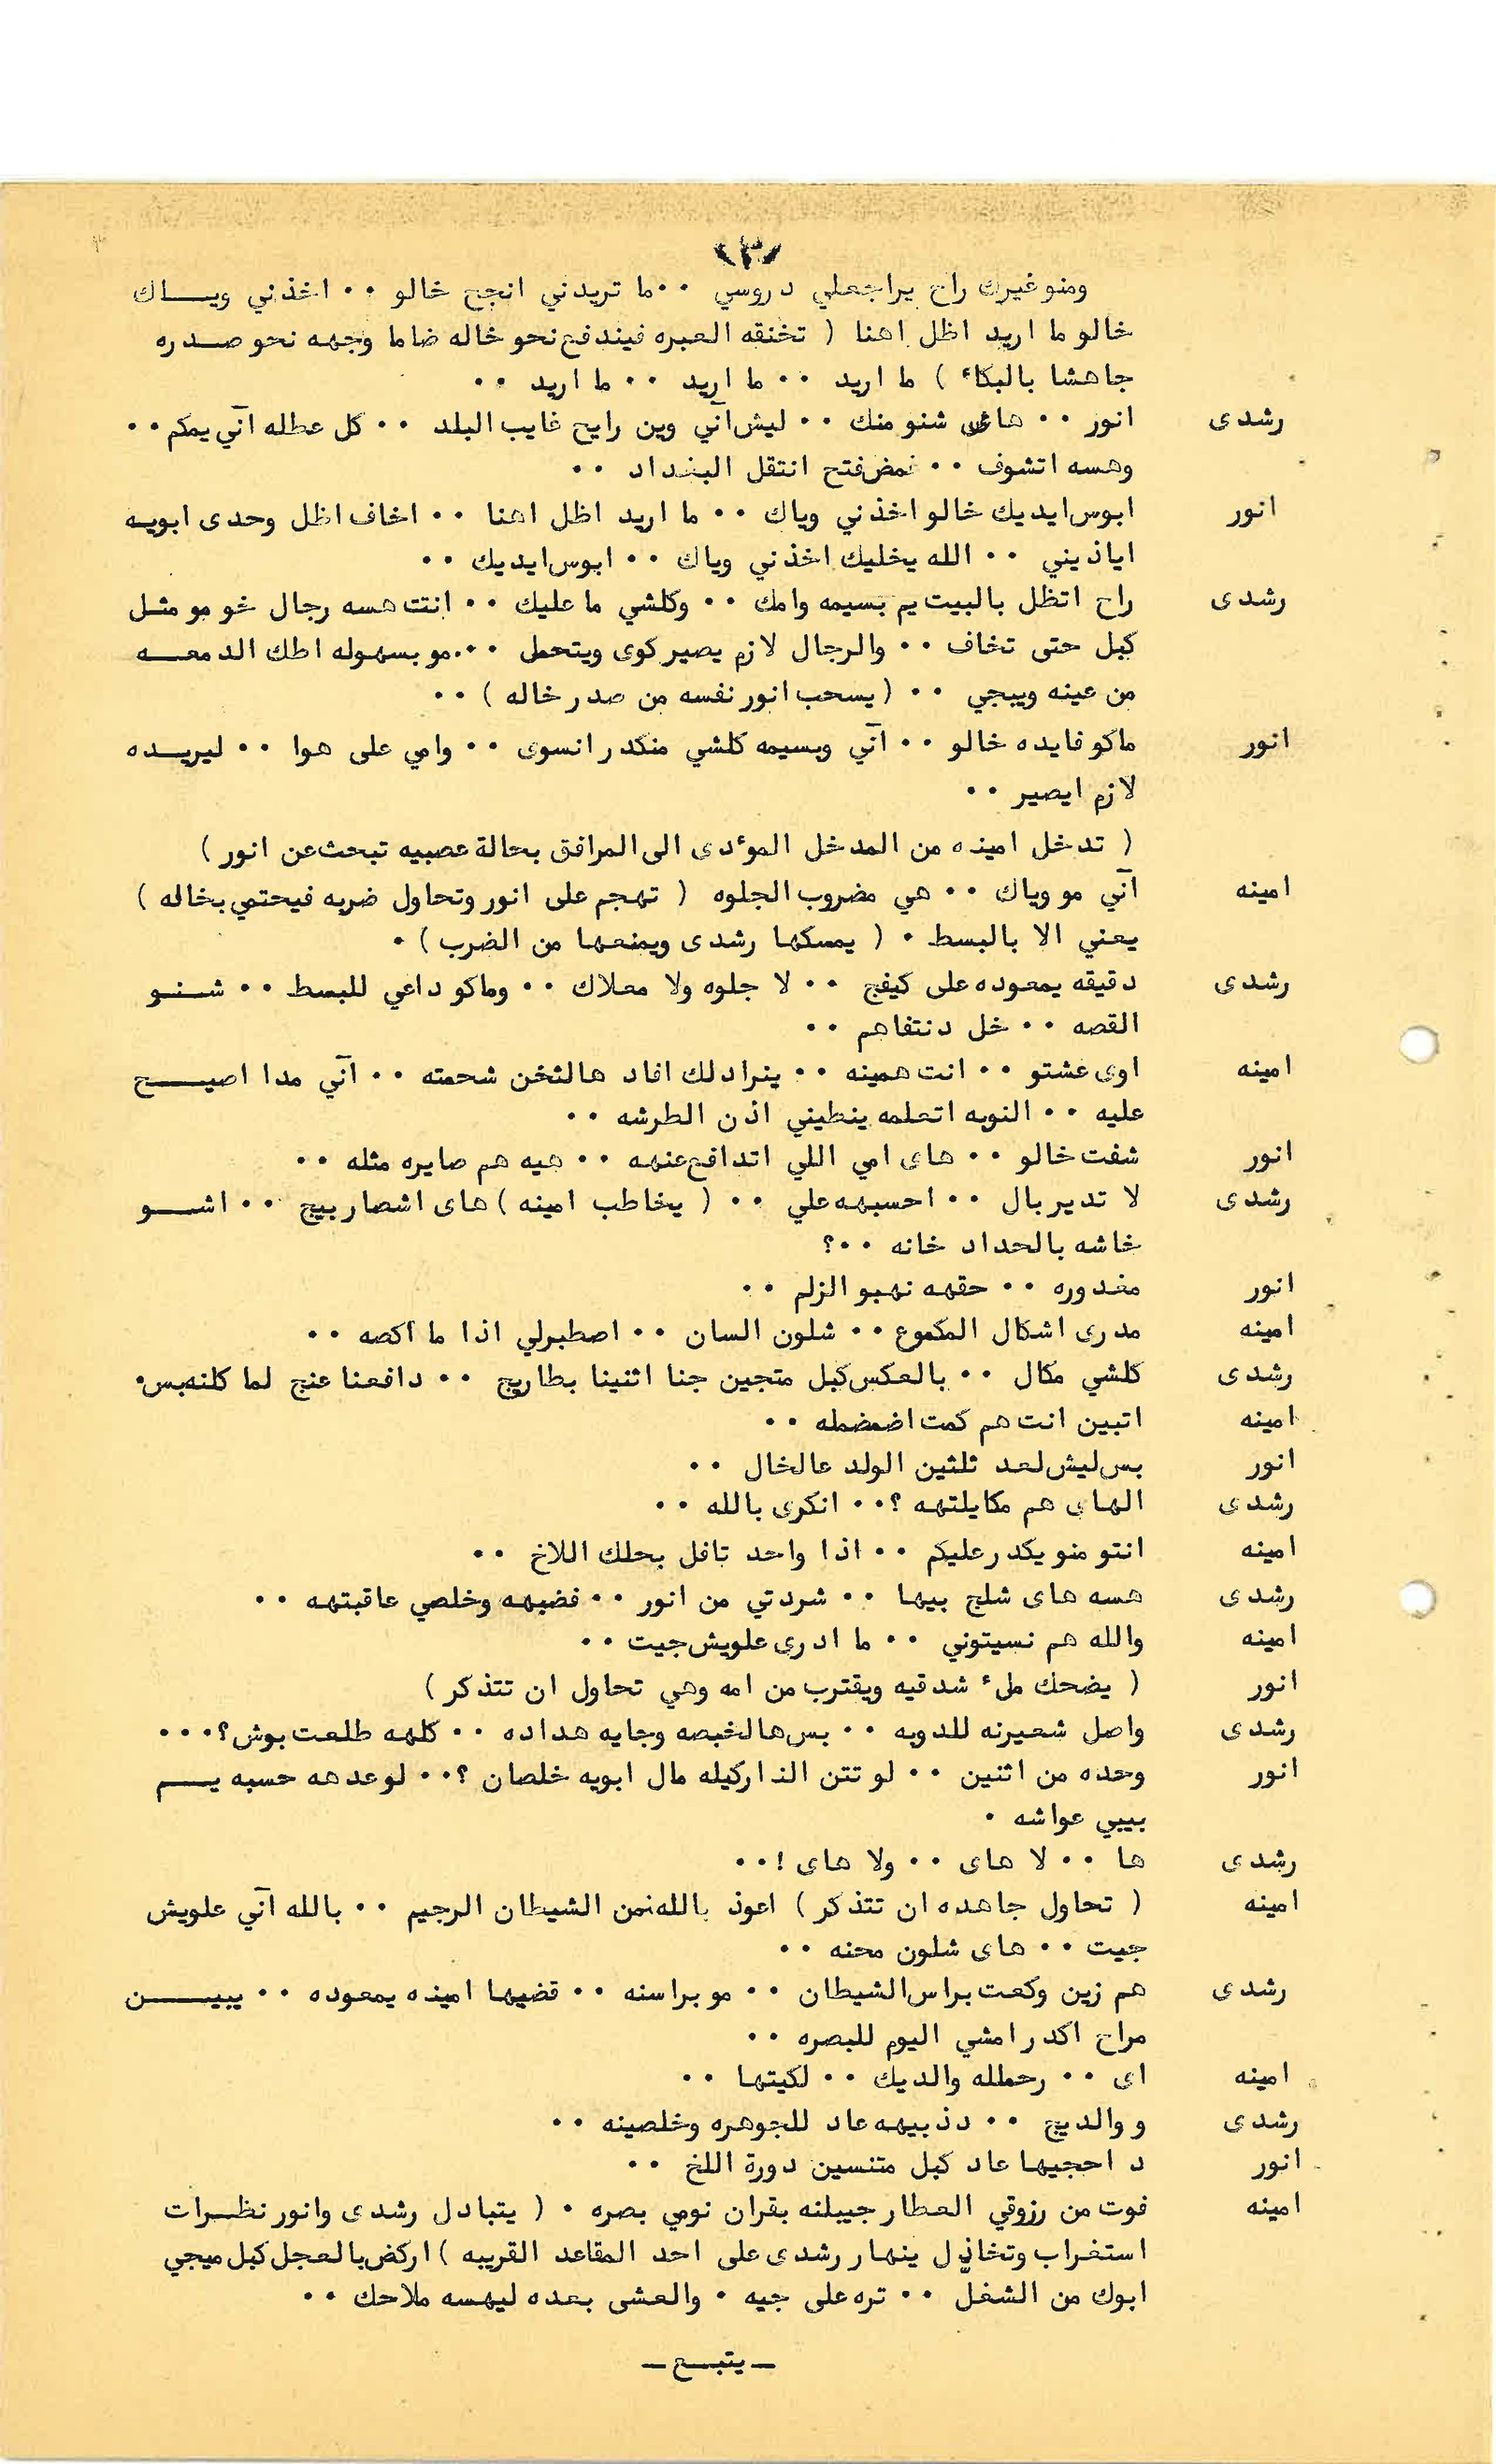 ١٣
ومنو غيرك راح يراجعلي دروسي ٠٠ ما تريدني انجح خالو ٠٠ اخذني ويـــاك
خالو ما اريد اظل اهنا ( تخنقه العبره فيندفع نحو خاله ضاما وجهه نحو صـدره
جاهشا بالبكاء ) ما اريد ٠٠ ما اريد ٠٠ ما اريد ٠٠
رشدى انور ٠٠ هاى شنو منك ٠٠ ليش آني وين رايح غايب البلد ٠٠ كل عطله آني يمكم ٠٠
وهسه اتشوف ٠٠ نمض فتح انتقل البغداد ٠٠
انور ابوس ايديك خالو اخذني وياك ٠٠ ما اريد اظل اهنا ٠٠ اخاف اظل وحدى ابويـه
اياذيني ٠٠ الله يخليك اخذني وياك ٠٠ ابوس ايديك ٠٠
رشدى راح اتظل بالبيت يم بسيمه وامك ٠٠ وكلشي ما عليك ٠٠ انتت هسه رجال خو مو مثـل
كبل حتى تخاف ٠٠ والرجال لازم يصير كوى ويتحمل ٠٠٠ مو بسهوله اطك الدمعـــه
من عينه ويبجي ٠٠ ( يسحب انور نفسه من صدر خاله ) ٠٠
انور ماكو فايده خالو ٠٠ آني وبسيمه كلشي منكدر انسوى ٠٠ وامي على هوا ٠٠ ليريــده
لازم ايصير ٠٠
( تدخل امينه من المدخل المؤدى الى المرافق بحالة عصبيه تبحث عن انور )
امينه آني مو وياك ٠٠ هي مضروب الجلوه ( تهجم على انور وتحاول ضربه فيحتمي بخاله )
يعني الا بالبسط ٠ ( يمسكها رشدى ويمنعها من الضرب ) ٠
رشدى دقيقه يمعوده على كيفج ٠٠ لا جلوه ولا معلاك ٠٠ وماكو داعي للبسط ٠٠ شـنـو
القصه ٠٠ خل دنتفاهم ٠٠
امينه اوى عشتو ٠٠ انت همينه ٠٠ ينرادلك افاد هالثخن شحمته ٠٠ آني مدا اصيـــح
عليه ٠٠ النوبه اتعلمه ينطيني اذن الطرشه ٠٠
انور شفت خالو ٠٠ هاى امي اللي اتدافع عنهه ٠٠ هيه هم صايره مثله ٠٠
رشدى لا تدير بال ٠٠ احسبهه علي ٠٠ ( يخاطب امينه ) هاى اشصار بيج ٠٠ اشـــو
خاشه بالحداد خانه ٠٠؟
انور مغدوره ٠٠ حقهه نهبو الزلم ٠٠
امينه مدرى اشكال المكموع ٠٠ شلون السان ٠٠ اصطبرلي اذا ما اكصه ٠٠
رشدى كلشي مكال ٠٠ بالعكس كبل متجين جنا اثنينا بطاريج ٠٠ دافعنا عنج لما كلنه بس٠
امينه اتبين انت هم كمت اضمضمله ٠٠
انور بس ليش لعد ثلثين الولد عالخال ٠٠
رشدى الهاى هم مكايلتهه ؟٠٠ انكرى بالله ٠٠
امينه انتو منو يكدر عليكم ٠٠ اذا واحد تافل بحلك اللاخ ٠٠
رشدى هسه هاى شلج بيها ٠٠ شردتي من انور ٠٠ فضيهه وخلصي عاقبتهه ٠٠
امينه والله هم نسيتوني ٠٠ ما ادرى علويش جيت ٠٠
انور ( يضحك ملء شدقيه ويقترب من امه وهي تحاول ان تتذكر )
رشدى واصل شعيرنه للدوبه ٠٠ بس هالخبصه وجايه هداده ٠٠ كلهه طلعت بوش ؟٠٠٠
انور وحده من اثنين ٠٠ لو تتن الناركيله مال ابويه خلصان ؟٠٠ لو عدهه حسبه يـــم
بيبي عواشه ٠
رشدى ها ٠٠ لا هاى ٠٠ ولا هاى !٠٠
امينه ( تحاول جاهده ان تتذكر ) اعوذ بالله من الشيطان الرجيم ٠٠ بالله آني علويش
جيت ٠٠ هاى شلون محنه ٠٠
رشدى هم زين وكعت براس الشيطان ٠٠ مو براسنه ٠٠ قضيها امينه يمعوده ٠٠ يبيـــن
مراح اكدر امشي اليوم للبصره ٠٠
امينه اى ٠٠ رحمالله والديك ٠٠ لكيتها ٠٠
رشدى و والديج ٠٠ دذبيهه عاد للجوهره وخلصينه ٠٠
انور د احجيها عاد كبل متنسين دورة اللخ ٠٠
امينه فوت من رزوقي العطار جيبلنه بقران نومي بصره ٠ ( يتبادل رشدى وانور نظـرات
استغراب وتخاذل ينهار رشدى على احد المقاعد القريبه ) اركض بالعجل كبل ميجي
ابوك من الشغل ٠٠ تره على جيه ٠ والعشى بعده ليهسه ملاحك ٠٠
ــ يتبـــع ــ